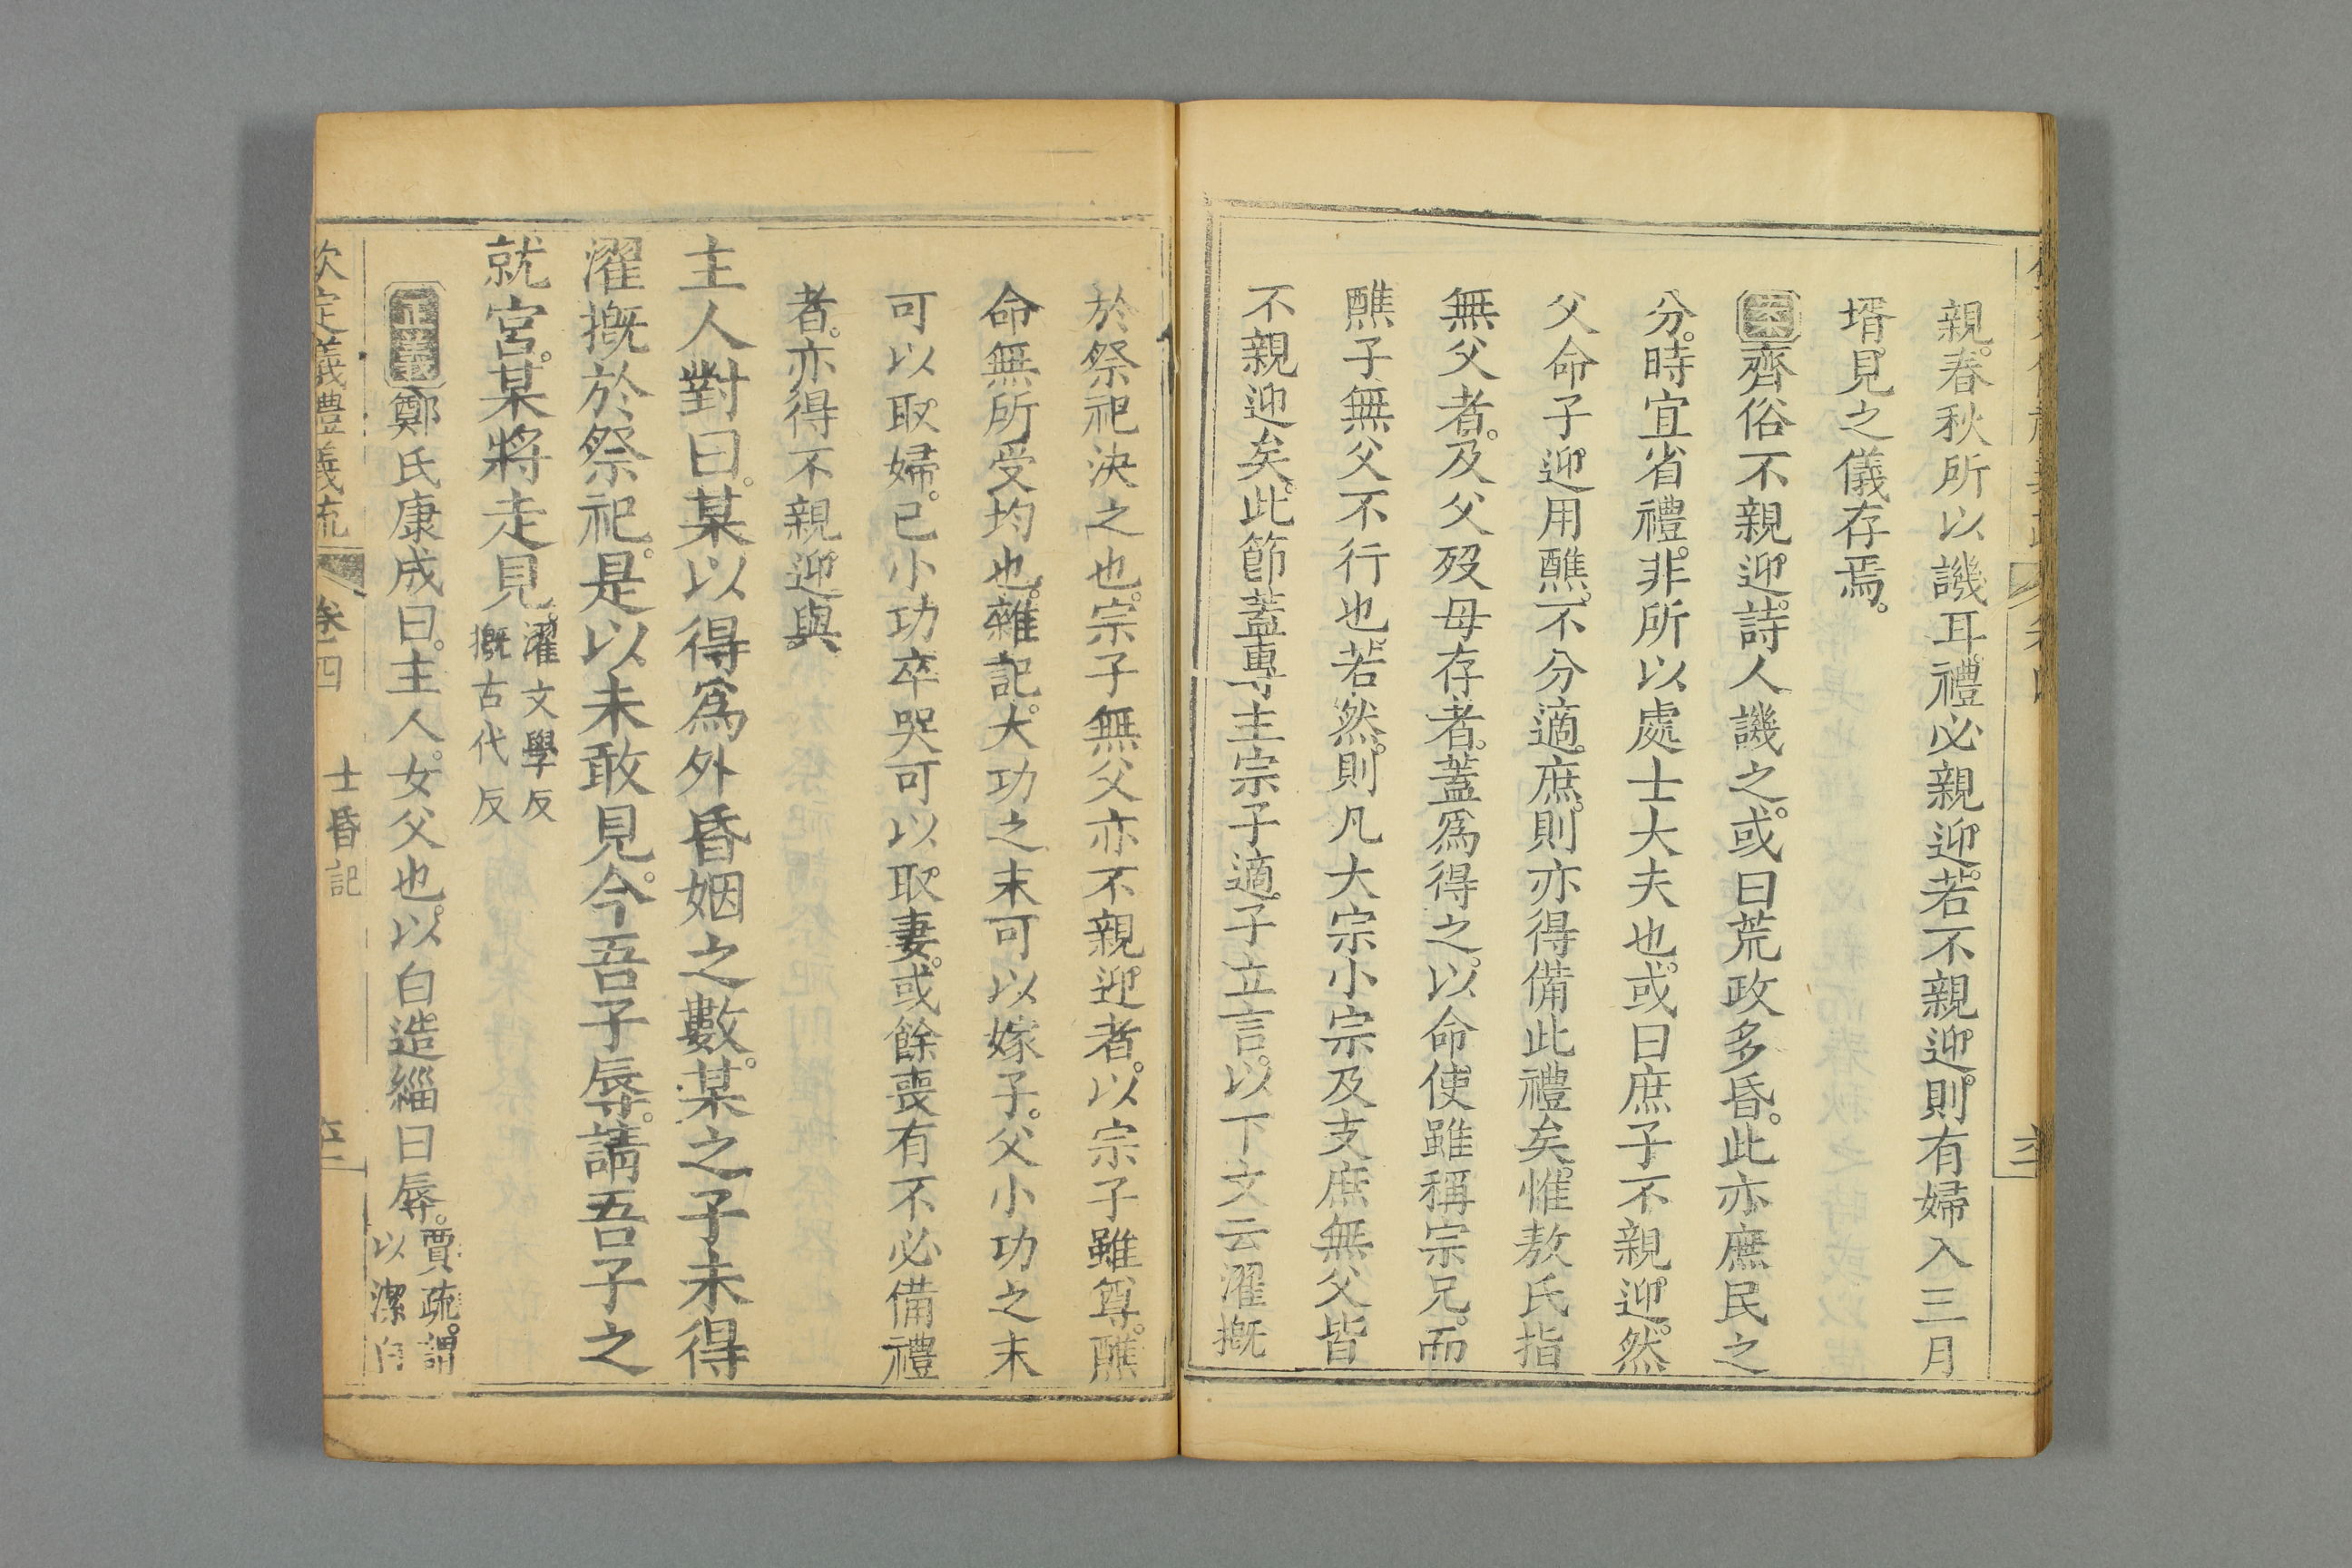 親春秋所以譏耳禮必親迎若不親迎則有婦入三月
壻見之儀存焉。
案齊俗不親迎詩人譏之或曰荒政多昏。此亦庶民之
分。時宜省禮非所以處士大夫也或曰庶子不親迎然
父命子迎用醮。不分適庶則亦得備此禮矣惟敖氏指
無父者。及父歿母存者。蓋爲得之。以命使雖稱宗兄。而
醮子無父不行也若然則凡大宗小宗及支庶無父皆
不親迎矣此節蓋專主宗子適子立言。以下文云濯摡
於祭祀決之也。宗子無父亦不親迎者。以宗子雖尊。醮
命無所受均也。雜記。大功之末可以嫁子。父小功之末
可以取婦。已小功卒哭可以取妻。或餘喪有不必備禮
者。亦得不親迎與
主人對曰。某以得爲外昏姻之數。某之子未得
濯摡於祭祀。是以未敢見。今吾子辱。請吾子之
就宮。某將走見。濯文學反
摡古代反
正義鄭氏康成曰。主人。女父也。以白造緇曰辱。賈疏。謂
以潔白
欽定儀禮義疏 卷四 士昏記